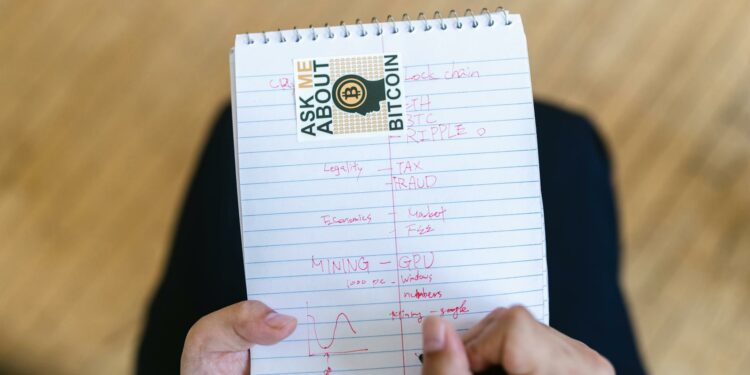 ASK ME
ABOUT
BITCOIN
lock chain
ETH
BTC
RIPPLE
Legality - TAX
FRAUD
Economics - Market
MINING - GPU
1000 PC - windows
numbers
Mining - single